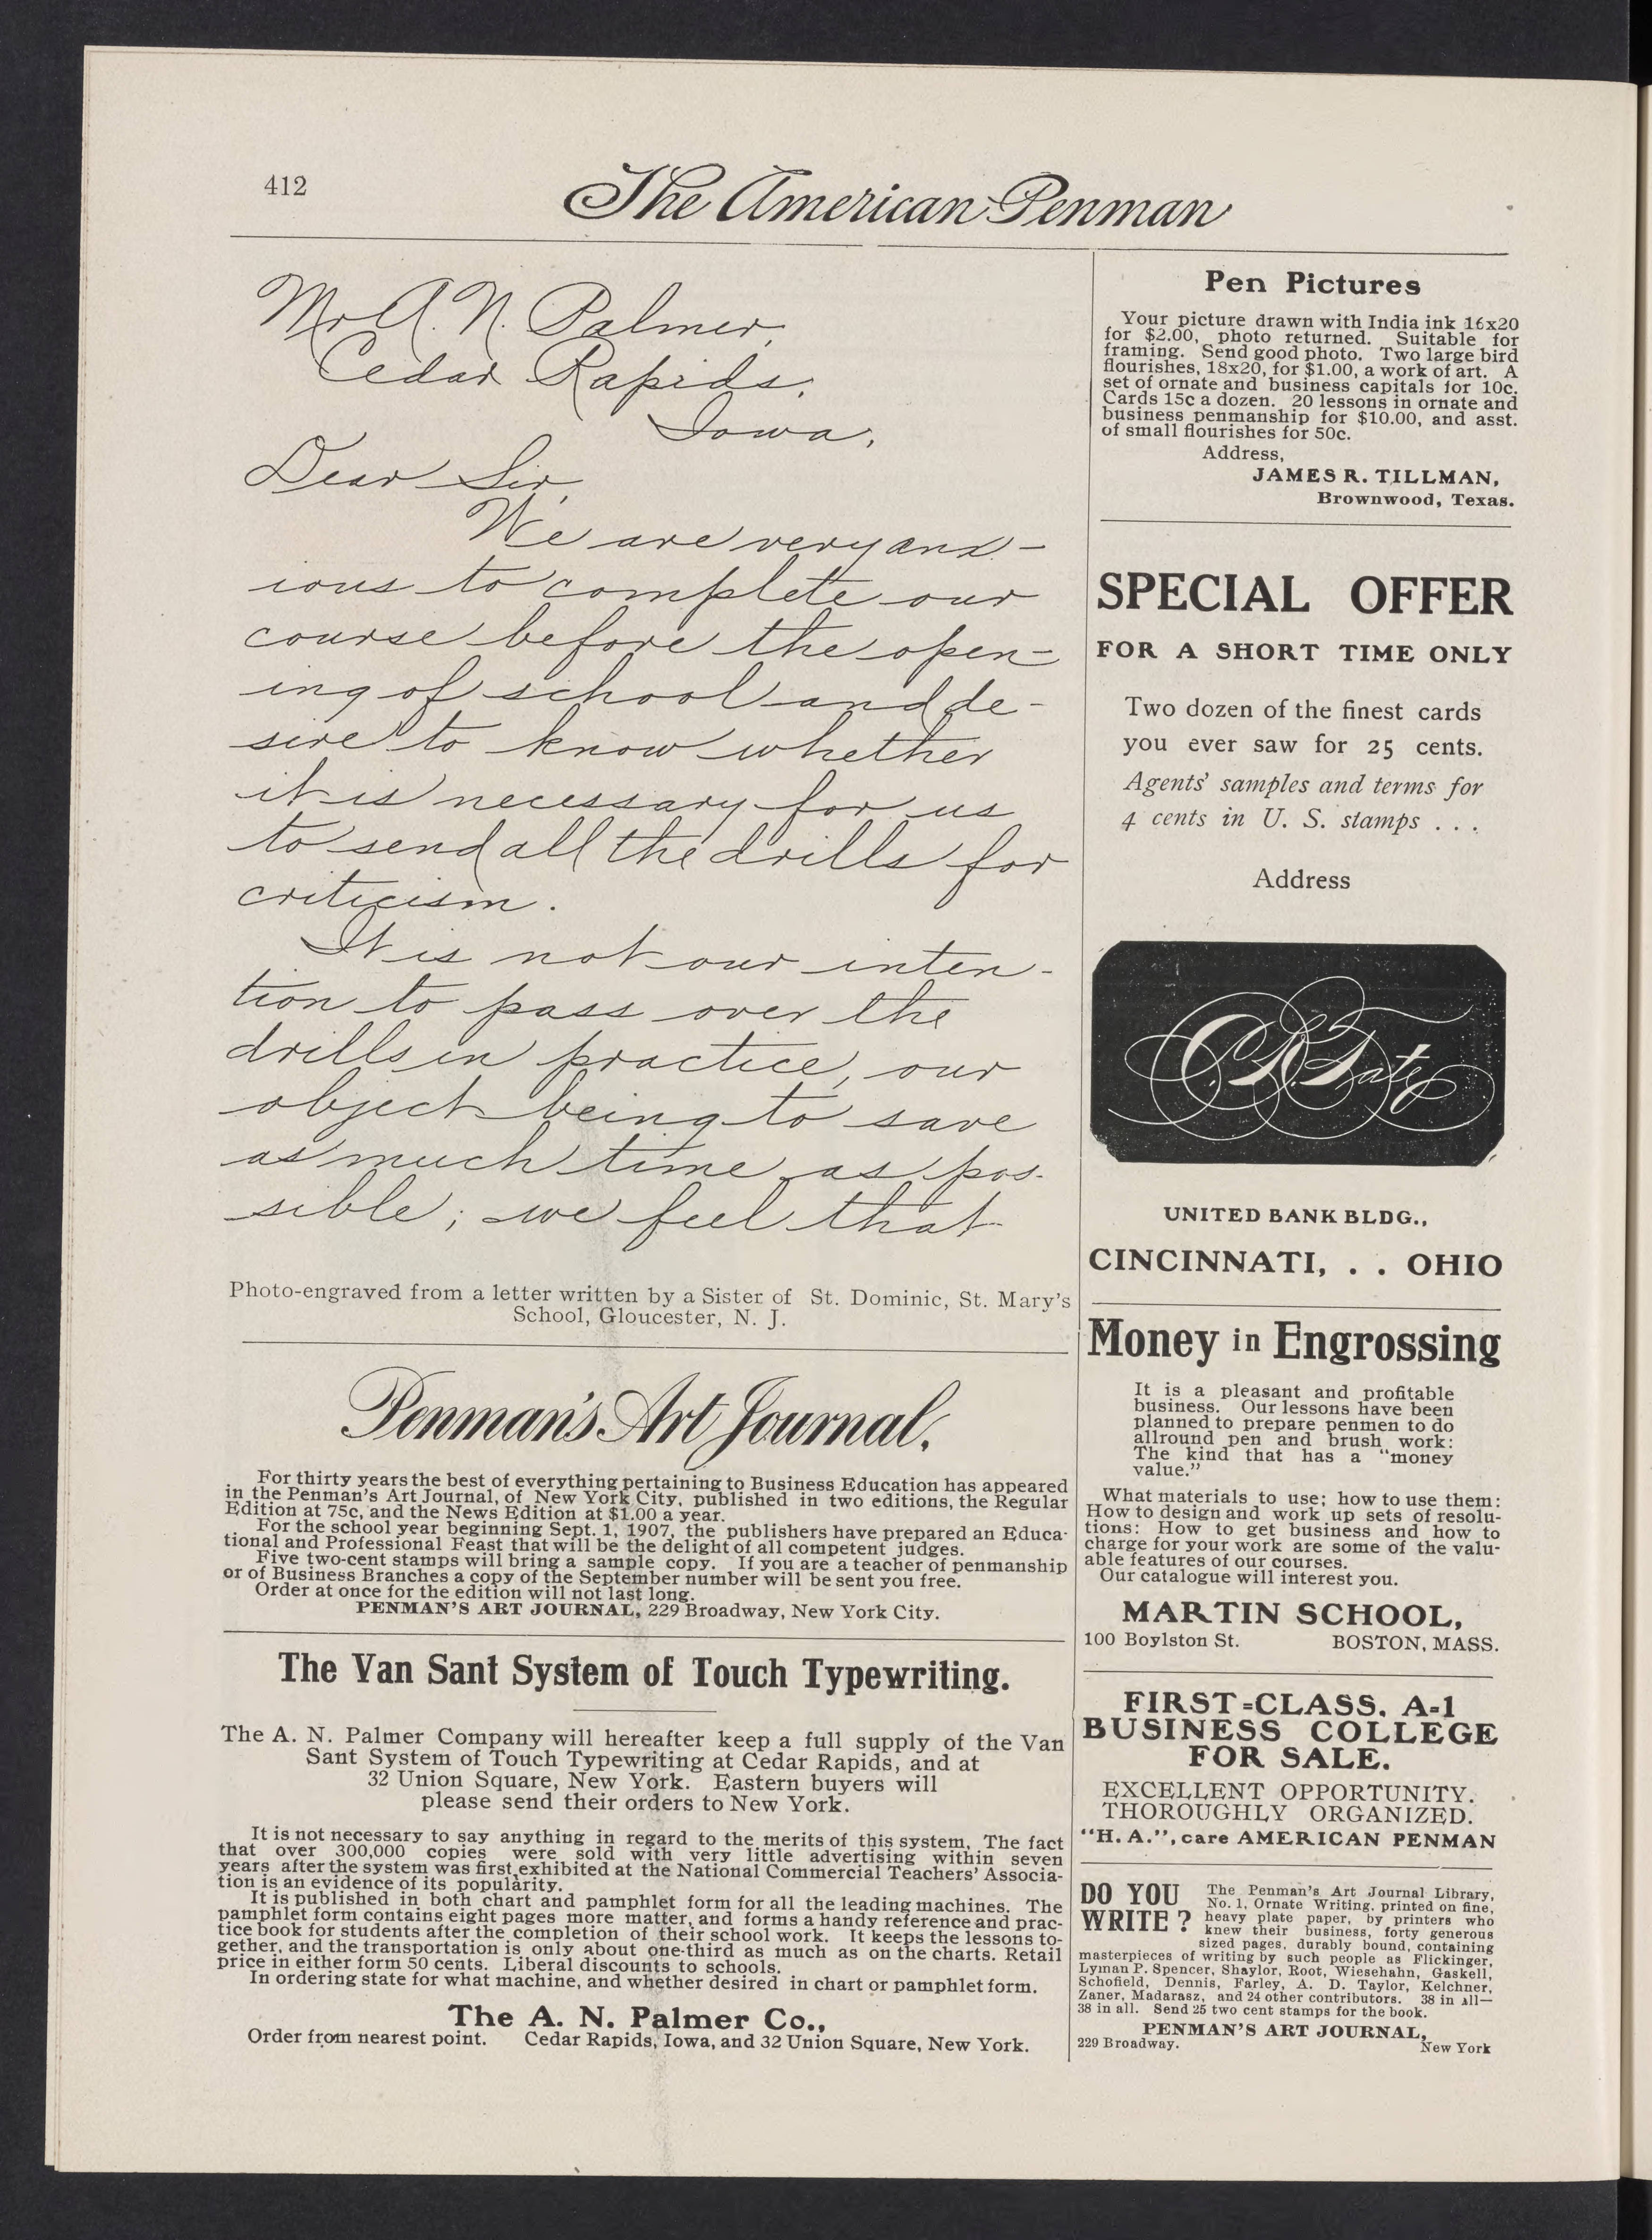 412
The American Penman
Mr A. N. Palmer,
Cedar Rapids,
Iowa,
Dear Sir,
We are very anx-
ious to complete our
course before the open-
ing of school and de-
sire to know whether
it is necessary for us
to send all the drills for
criticism.
It is not our inten-
tion to pass over the
drills in practice, our
object being to save
as much time as pos-
sible; we feel that
Photo-engraved from a letter written by a Sister of St. Dominic, St. Mary's
School, Gloucester, N. J.
Penman's Art Journal.
For thirty years the best of everything pertaining to Business Education has appeared
in the Penman's Art Journal, of New York City, published in two editions, the Regular
Edition at 75c, and the News Edition at $1.00 a year.
For the school year beginning Sept. 1, 1907, the publishers have prepared an Educa-
tional and Professional Feast that will be the delight of all competent judges.
Five two-cent stamps will bring a sample copy. If you are a teacher of penmanship
or of Business Branches a copy of the September number will be sent you free.
Order at once for the edition will not last long.
PENMAN'S ART JOURNAL, 229 Broadway, New York City.
The Van Sant System of Touch Typewriting.
The A. N. Palmer Company will hereafter keep a full supply of the Van
Sant System of Touch Typewriting at Cedar Rapids, and at
32 Union Square, New York. Eastern buyers will
please send their orders to New York.
It is not necessary to say anything in regard to the merits of this system, The fact
that over 300,000 copies were sold with very little advertising within seven
years after the system was first exhibited at the National Commercial Teachers' Associa-
tion is an evidence of its popularity.
It is published in both chart and pamphlet form for all the leading machines. The
pamphlet form contains eight pages more matter, and forms a handy reference and prac-
tice book for students after the completion of their school work. It keeps the lessons to-
gether, and the transportation is only about one-third as much as on the charts. Retail
price in either form 50 cents. Liberal discounts to schools.
In ordering state for what machine, and whether desired in chart or pamphlet form.
The A. N. Palmer Co.,
Order from nearest point. Cedar Rapids, Iowa, and 32 Union Square, New York.
Pen Pictures
Your picture drawn with India ink 16x20
for $2.00, photo returned. Suitable for
framing. Send good photo. Two large bird
flourishes, 18x20, for $1.00, a work of art. A
set of ornate and business capitals for 10c.
Cards 15c a dozen. 20 lessons in ornate and
business penmanship for $10.00, and asst.
of small flourishes for 50c.
Address,
JAMES R. TILLMAN,
Brownwood, Texas.
SPECIAL OFFER
FOR A SHORT TIME ONLY
Two dozen of the finest cards
you ever saw for 25 cents.
Agents' samples and terms for
4 cents in U. S. stamps . . .
Address
C. R. Tate
UNITED BANK BLDG.,
CINCINNATI, . . OHIO
Money in Engrossing
It is a pleasant and profitable
business. Our lessons have been
planned to prepare penmen to do
allround pen and brush work:
The kind that has a "money
value."
What materials to use; how to use them:
How to design and work up sets of resolu-
tions: How to get business and how to
charge for your work are some of the valu-
able features of our courses.
Our catalogue will interest you.
MARTIN SCHOOL,
100 Boylston St. BOSTON, MASS.
FIRST=CLASS. A-1
BUSINESS COLLEGE
FOR SALE.
EXCELLENT OPPORTUNITY.
THOROUGHLY ORGANIZED.
"H. A.", care AMERICAN PENMAN
DO YOU
WRITE ?
The Penman's Art Journal Library,
No. 1, Ornate Writing, printed on fine,
heavy plate paper, by printers who
knew their business, forty generous
sized pages, durably bound, containing
masterpieces of writing by such people as Flickinger,
Lyman P. Spencer, Shaylor, Root, Wiesehahn, Gaskell,
Schofield, Dennis, Farley, A. D. Taylor, Kelchner,
Zaner, Madarasz, and 24 other contributors. 38 in all—
38 in all. Send 25 two cent stamps for the book.
PENMAN'S ART JOURNAL,
229 Broadway. New York